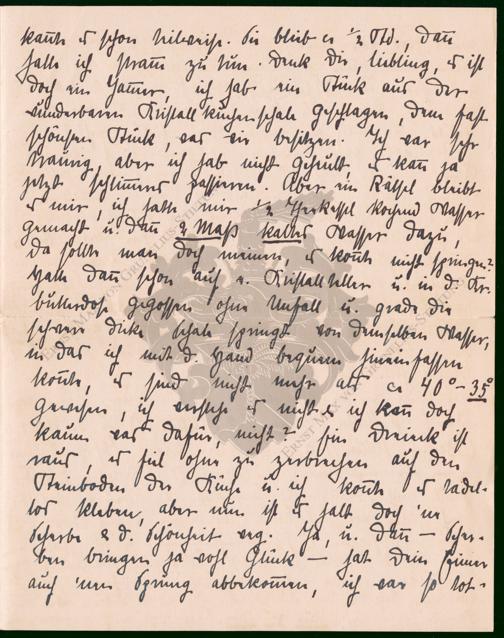 kannte es schon teilweise. Sie blieb ca ½ Std., dann
hatte ich stramm zu tun. Denk dir, Liebling, es ist
doch ein Jammer, ich hab ein Stück aus der
wunderbaren Kristallkuchenschale geschlagen, dem fast
schönsten Stück, was wir besitzen. Ich war sehr
traurig, aber ich hab nicht geheult, es kann ja
jetzt schlimmeres passieren. Aber ein Rätsel bleibt
es mir, ich hatte mir ½ Herdkessel kochend Wasser
gemacht u. dann 2 Maß kaltes Wasser dazu,
da sollte man doch meinen, es könnte nicht springen?
Hatte dann schon auf e. Kristallteller u. in d. Kr.
butterdose gegossen ohne Unfall u. grade die
schwere dicke Schale springt von demselben Wasser,
in das ich mit d. Hand bequem hineinfassen
konnte, es sind nicht mehr als ca 40°–35°
gewesen, ich verstehe es nicht & ich kann doch
kaum was dafür, nicht? Ein Dreieck ist
raus, es fiel ohne zu zerbrechen auf den
Steinboden der Küche u. ich konnte es tadel-
los kleben, aber nun ist es halt doch 'ne
Scherbe & d. Schönheit weg. Ja, u. dann — Scher-
ben bringen ja wohl Glück — hat dein Eimer
auch 'nen Sprung abbekommen, ich war so tot-